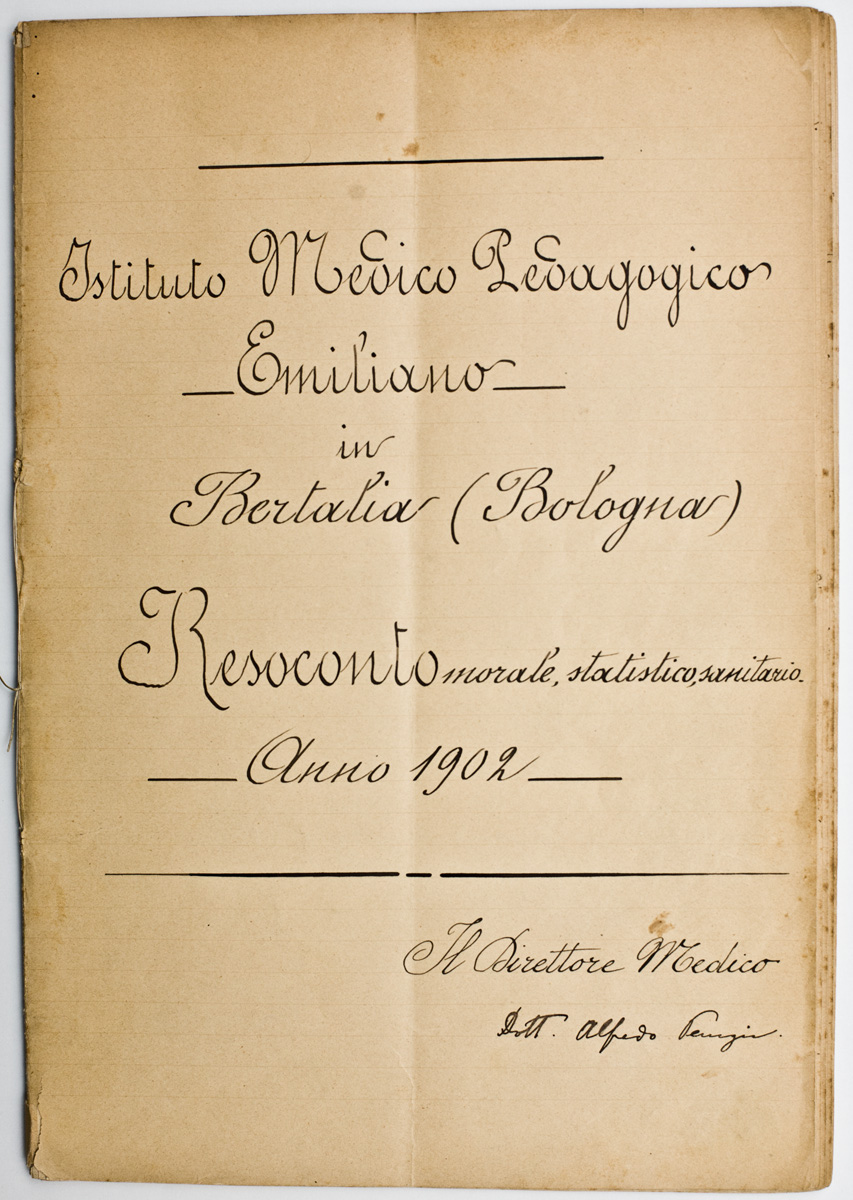 Istituto Medico Pedagogico
Emiliano
in
Bertalia (Bologna)
Resoconto morale, statistico, sanitario.
Anno 1902
Il Direttore Medico
Dott. Alfredo